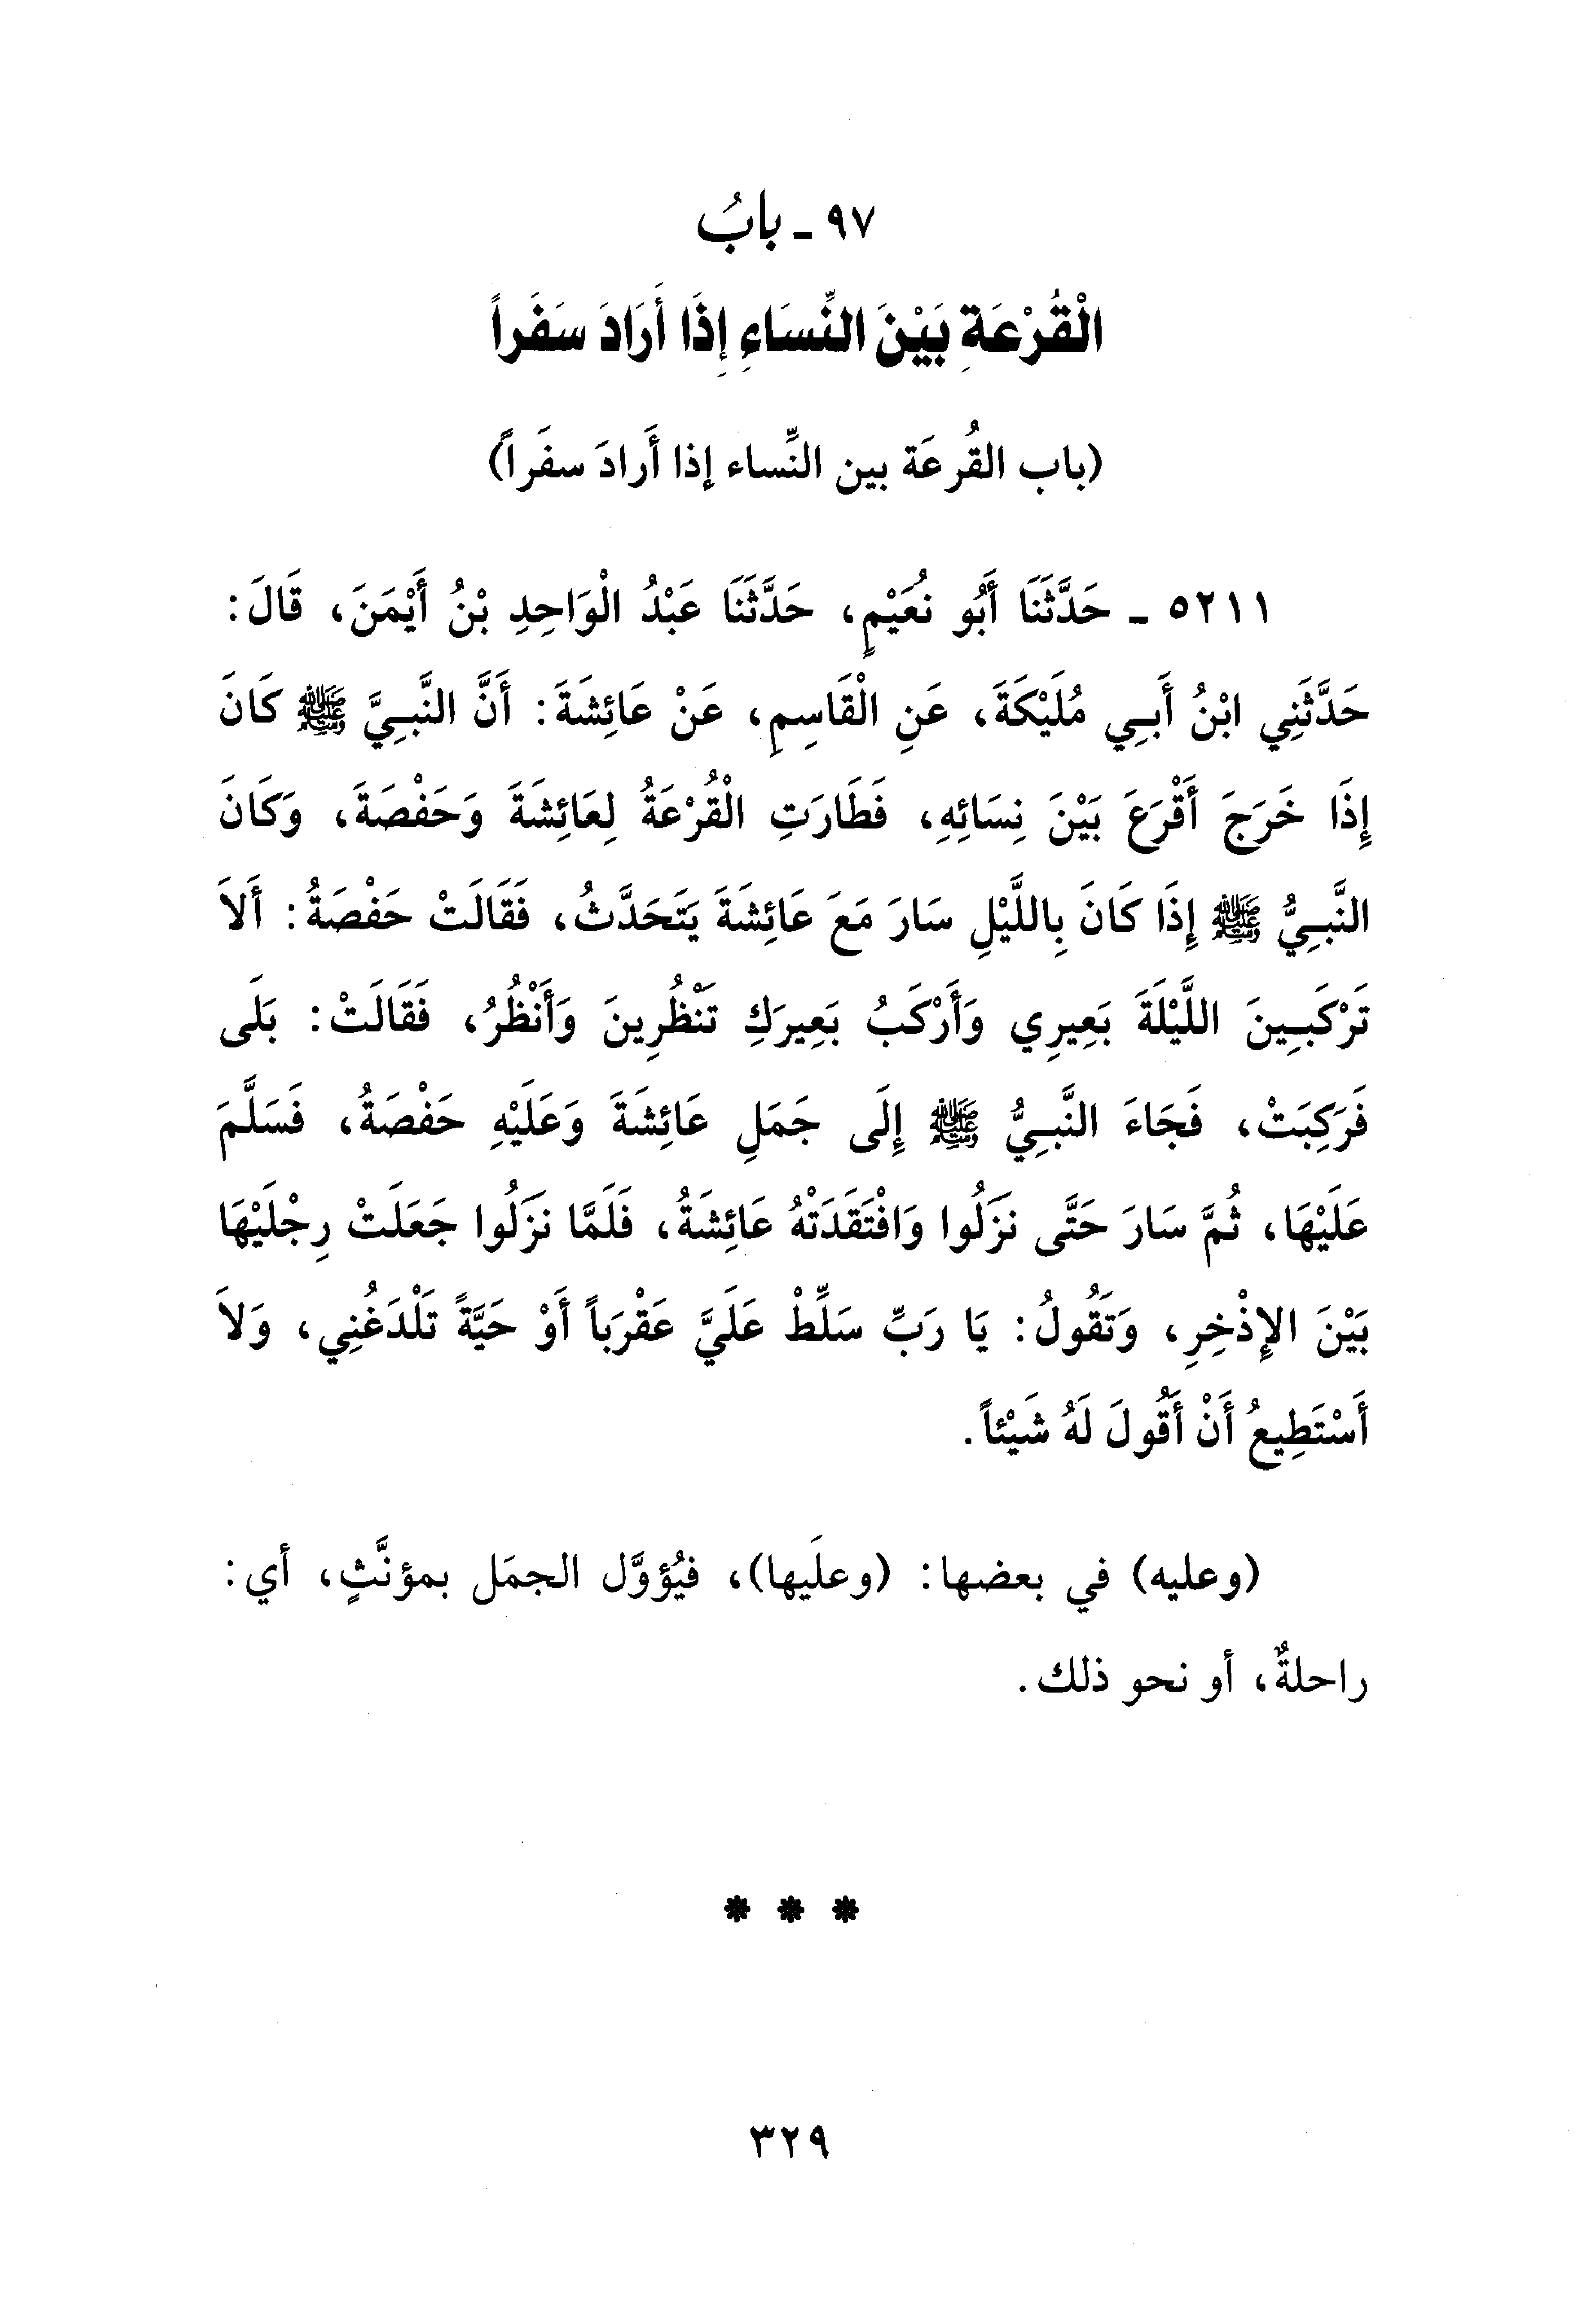 ٩٧ - بابُ
الْقُرْعَةِ بَيْنَ النِّسَاءِ إِذَا أَرَادَ سَفَراً
(باب القُرعَة بين النِّساء إذا أَرادَ سفَراً)
٥٢١١ - حَدَّثَنَا أَبُو نُعَيْمٍ، حَدَّثَنَا عَبْدُ الْوَاحِدِ بْنُ أَيْمَنَ، قَالَ:
حَدَّثَنِي ابْنُ أَبِي مُلَيْكَةَ، عَنِ الْقَاسِمِ، عَنْ عَائِشَةَ: أَنَّ النَّبِيَّ ﷺ كَانَ
إِذَا خَرَجَ أَقْرَعَ بَيْنَ نِسَائِهِ، فَطَارَتِ الْقُرْعَةُ لِعَائِشَةَ وَحَفْصَةَ، وَكَانَ
النَّبِيُّ ﷺ إِذَا كَانَ بِاللَّيْلِ سَارَ مَعَ عَائِشَةَ يَتَحَدَّثُ، فَقَالَتْ حَفْصَةُ: أَلاَ
تَرْكَبِينَ اللَّيْلَةَ بَعِيرِي وَأَرْكَبُ بَعِيرَكِ تَنْظُرِينَ وَأَنْظُرُ، فَقَالَتْ: بَلَى
فَرَكِبَتْ، فَجَاءَ النَّبِيُّ ﷺ إِلَى جَمَلِ عَائِشَةَ وَعَلَيْهِ حَفْصَةُ، فَسَلَّمَ
عَلَيْهَا، ثُمَّ سَارَ حَتَّى نَزَلُوا وَافْتَقَدَتْهُ عَائِشَةُ، فَلَمَّا نَزَلُوا جَعَلَتْ رِجْلَيْهَا
بَيْنَ الإِذْخِرِ، وَتَقُولُ: يَا رَبِّ سَلِّطْ عَلَيَّ عَقْرَباً أَوْ حَيَّةً تَلْدَغُنِي، وَلاَ
أَسْتَطِيعُ أَنْ أَقُولَ لَهُ شَيْئاً.
(وعليه) في بعضها: (وعلَيها)، فيُؤوَّل الجمَل بمؤنَّثٍ، أي:
راحلةٌ، أو نحو ذلك.
* * *
٣٢٩